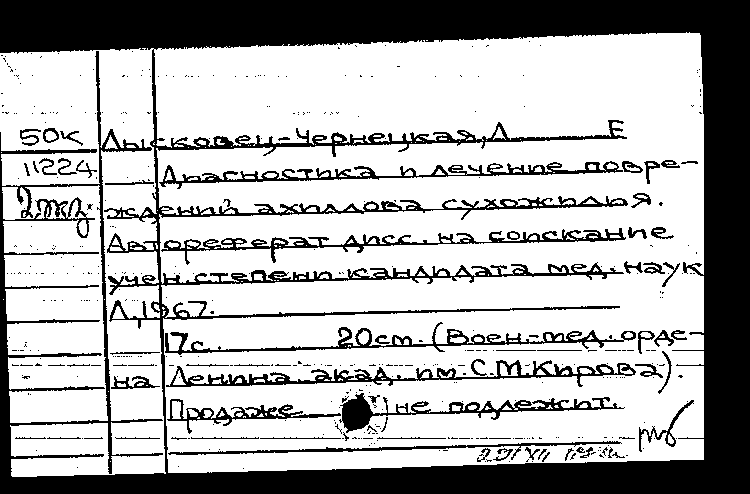 50к Лысковец-Чернецкая, Л Е
11224 Диагностика и лечение повре-
2экз. ждений ахиллова сухожилия.
Автореферат дисс. на соискание
учен. степени кандидата мед. наук
Л, 1967.
17с. 20см. (Воен.-мед. орде-
на Ленина акад. им. С.М.Кирова).
Продаже не подлежит.